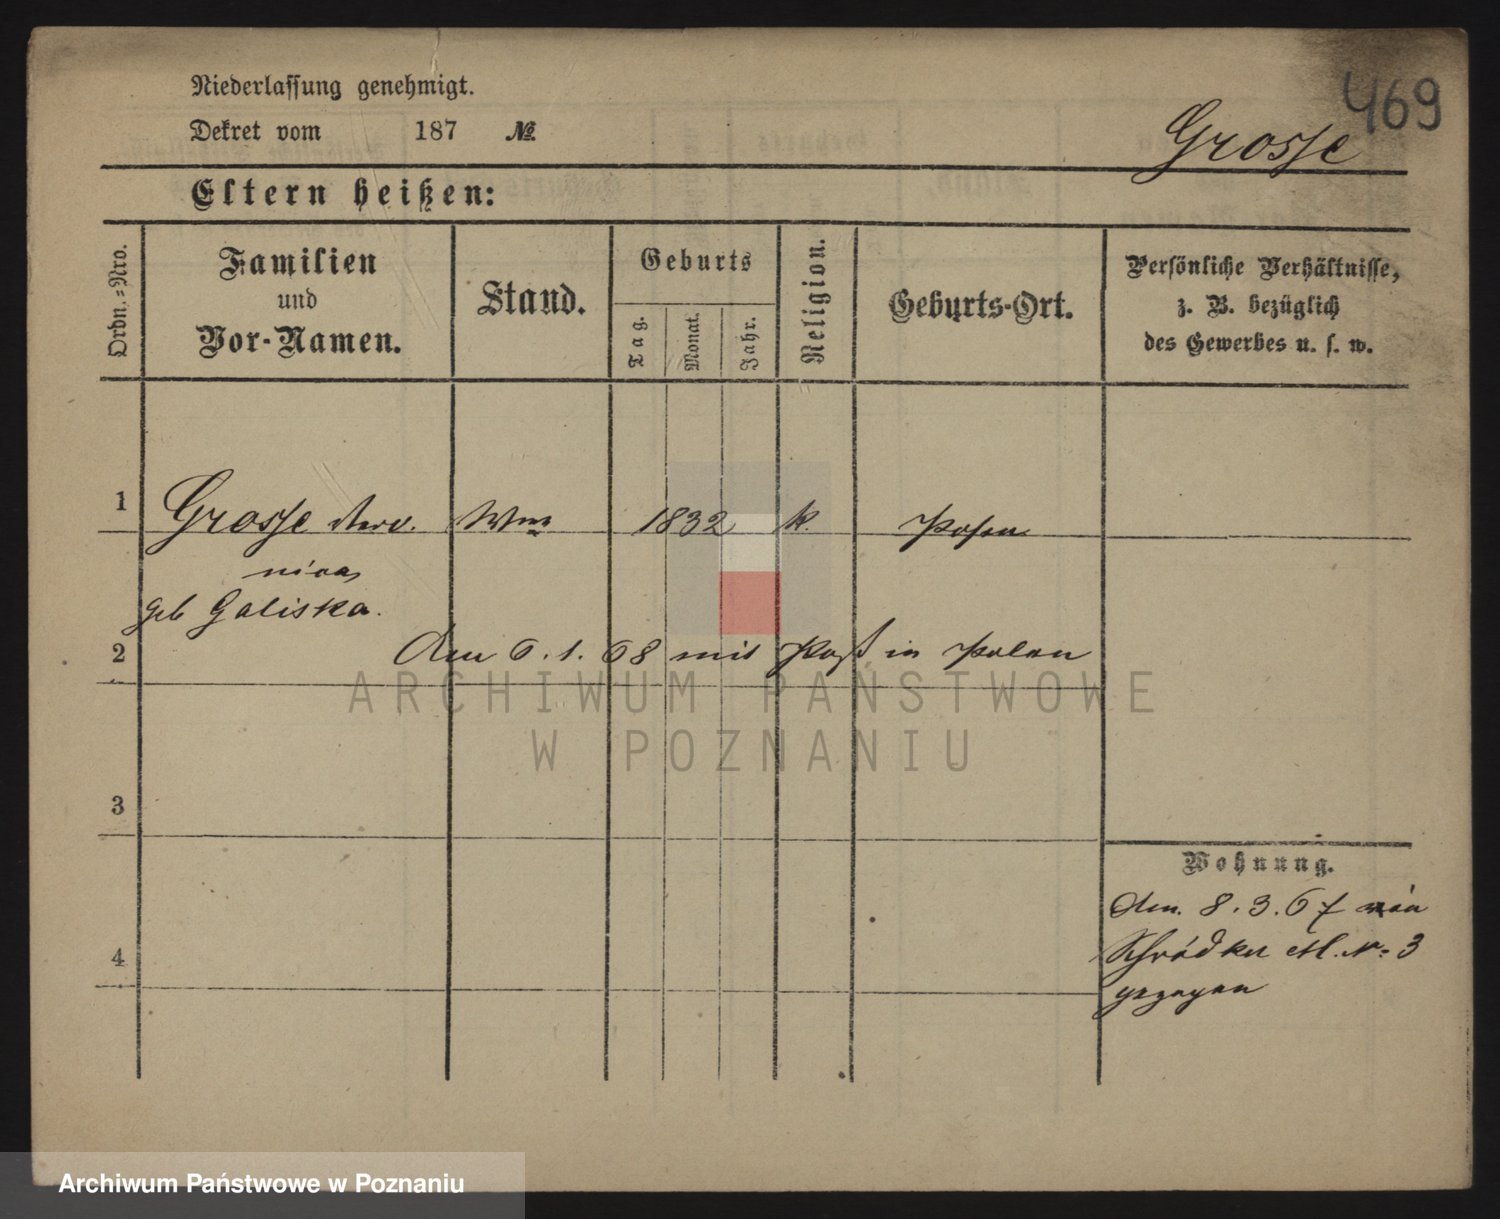 469
Niederlassung genehmigt.
Dekret vom 187 №
Grosse
Eltern heißen:
Ordn.-Nro.
Familien
und
Vor-Namen.
Stand.
Geburts
Tag.
Monat.
Jahr.
Religion.
Geburts-Ort.
Persönliche Verhältnisse,
z. B. bezüglich
des Gewerbes u. s. w.
1 Grosse Wwe 1832 k. Posen
geb Galiska.
2 den 6. 1. 68 mit Paß in Polen
ARCHIWUM PAŃSTWOWE
W POZNANIU
3
Wohnung.
den 8. 3. 67
Schrodka M. No 3
gezogen
4
Archiwum Państwowe w Poznaniu